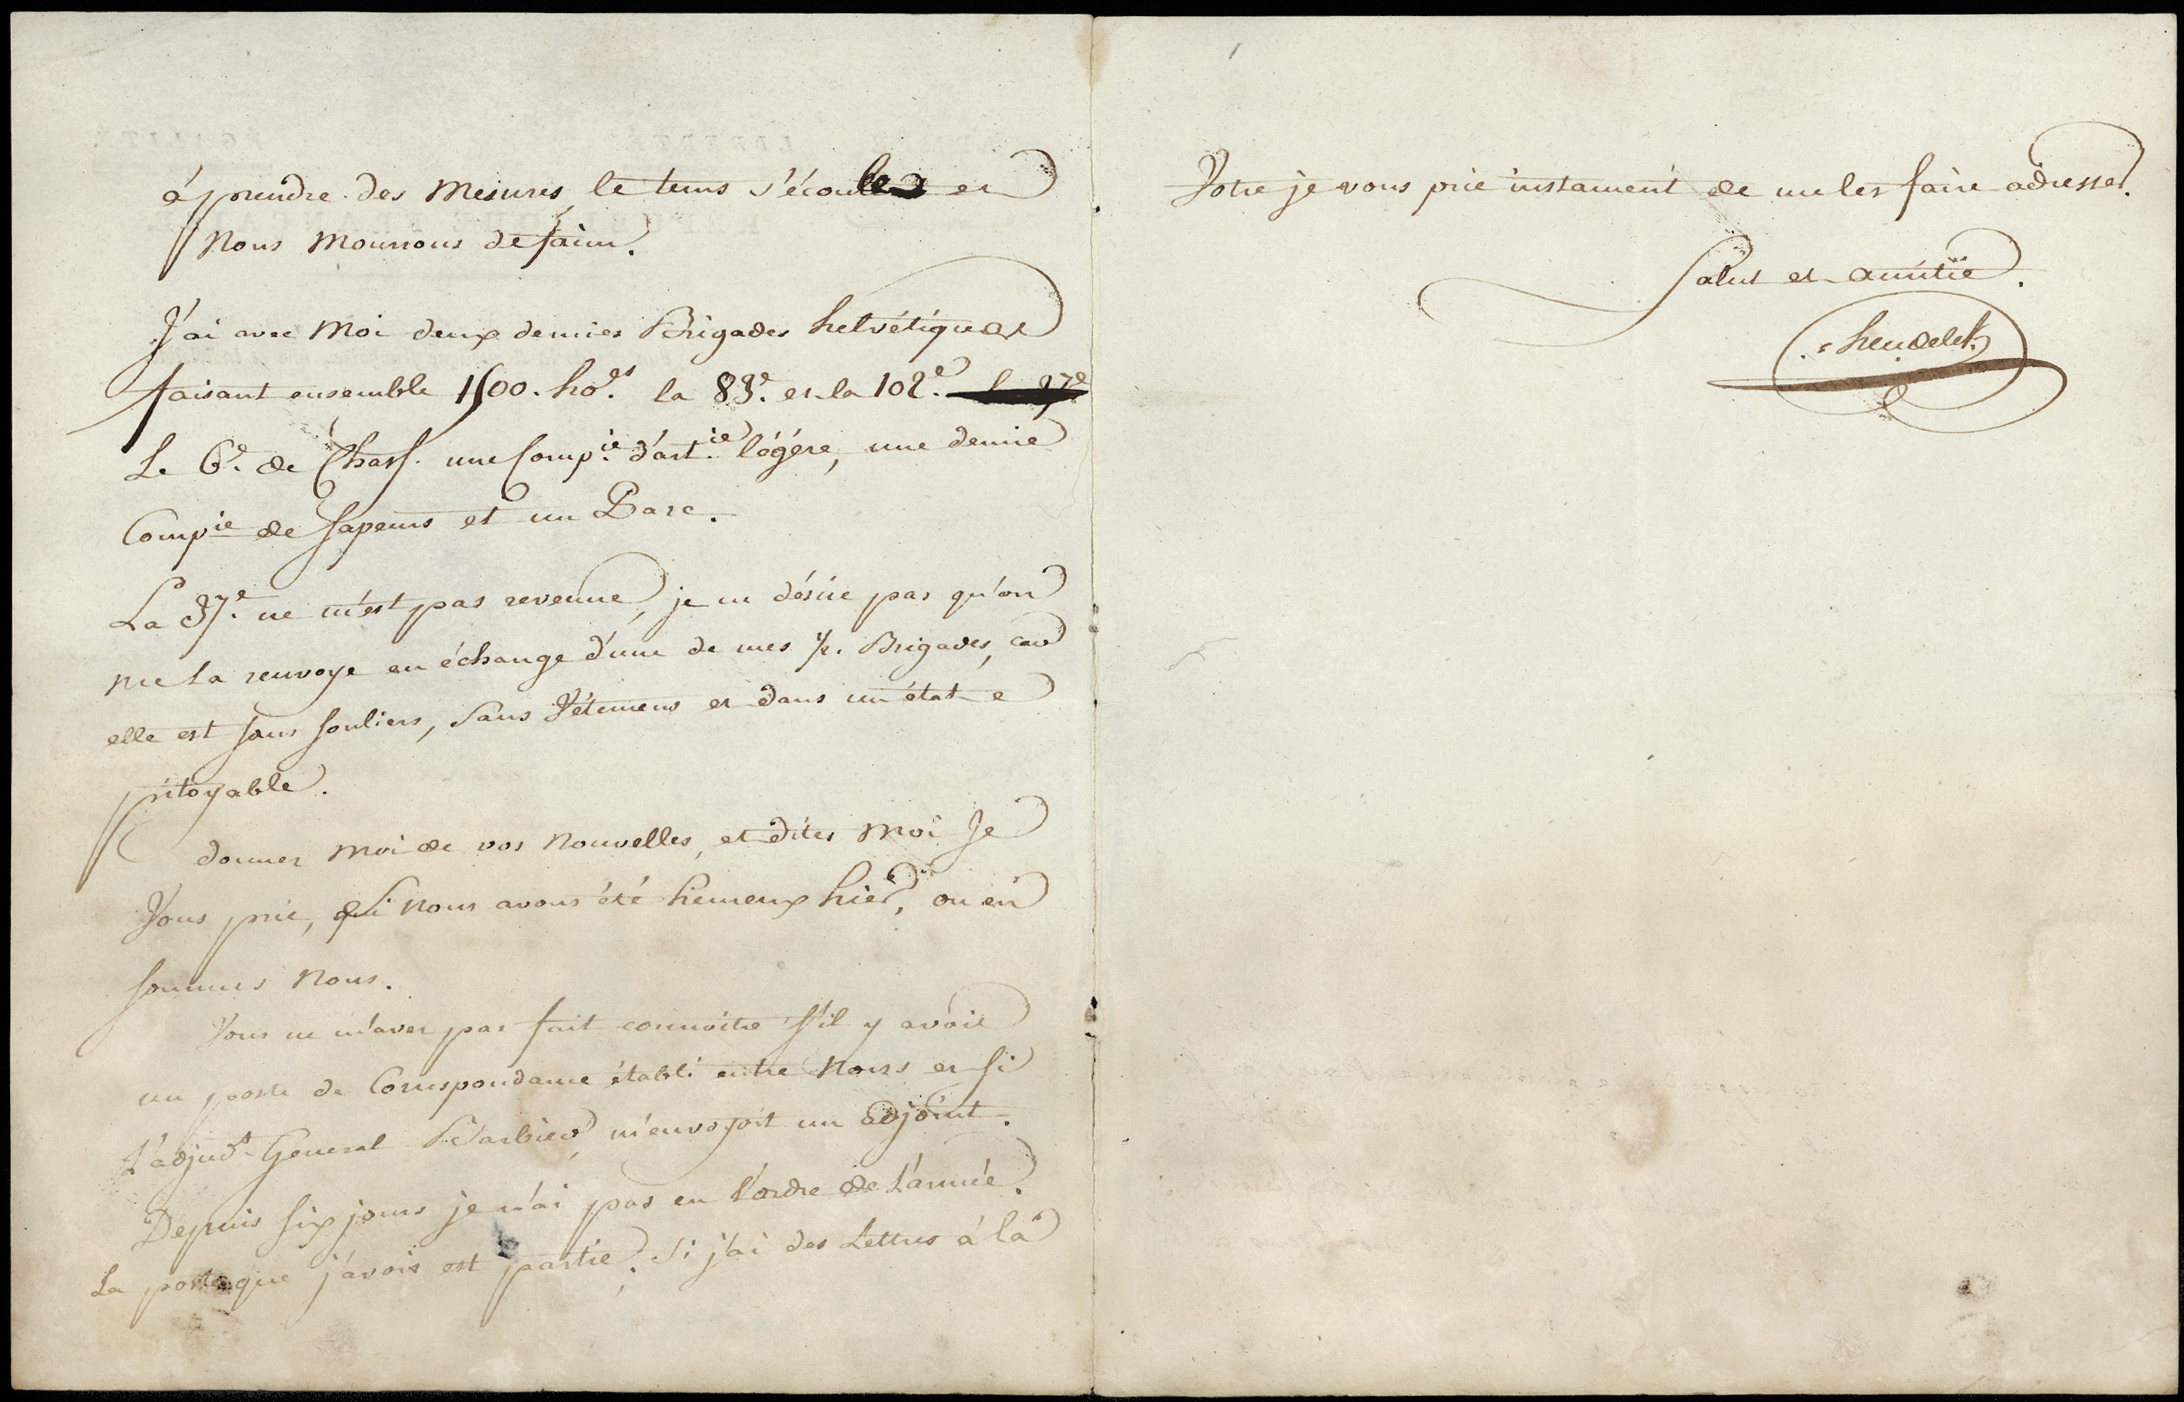 à prendre des Mesures, le tems s'écoule et
Nous Mourrons de faim.
J'ai avec Moi deux demies Brigades helvétiques
faisant ensemble 1500. ho.es la 83e. et la 102e.
Le 6e. de Chass. une Comp.ie d'art.ie légére, une demie
Compie de Sapeurs et un Parc.
La 37e. ne m'est pas revenue, je ne désire pas qu'on
me la renvoye en échange d'une de mes 1/2. Brigades, car
elle est sans souliers, sans Vétemens et dans un état
pitoyable.
donner moi de vos Nouvelles, et dites moi Je
Vous prie, si Nous avons été heureux hier, ou en
sommes Nous.
Vous ne m'aver pas fait connoitre s'il y avoit
un poste de Correspondance établi entre Nous et si
L'adjudt General Barbier m'envoyoit un adjoint.
Depuis six jours je n'ai pas eu l'ordre de l'armée.
La poste que j'avois est partie. Si j'ai des Lettres à la
Votre je vous prie instament de me les faire adresser.
Salut et amitié.
heudelet